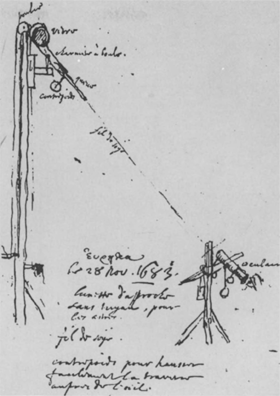 poulie
verre
charniere à boule
queue
contrepoids
fil de soye
oculaire
ἑυρηκα
le 28 Nov. 1683.
lunette d'approche
sans tuyau, pour
les astres
fil de soye.
contrepoids pour hausser
facilement la traverse
aupres de l'oeil.